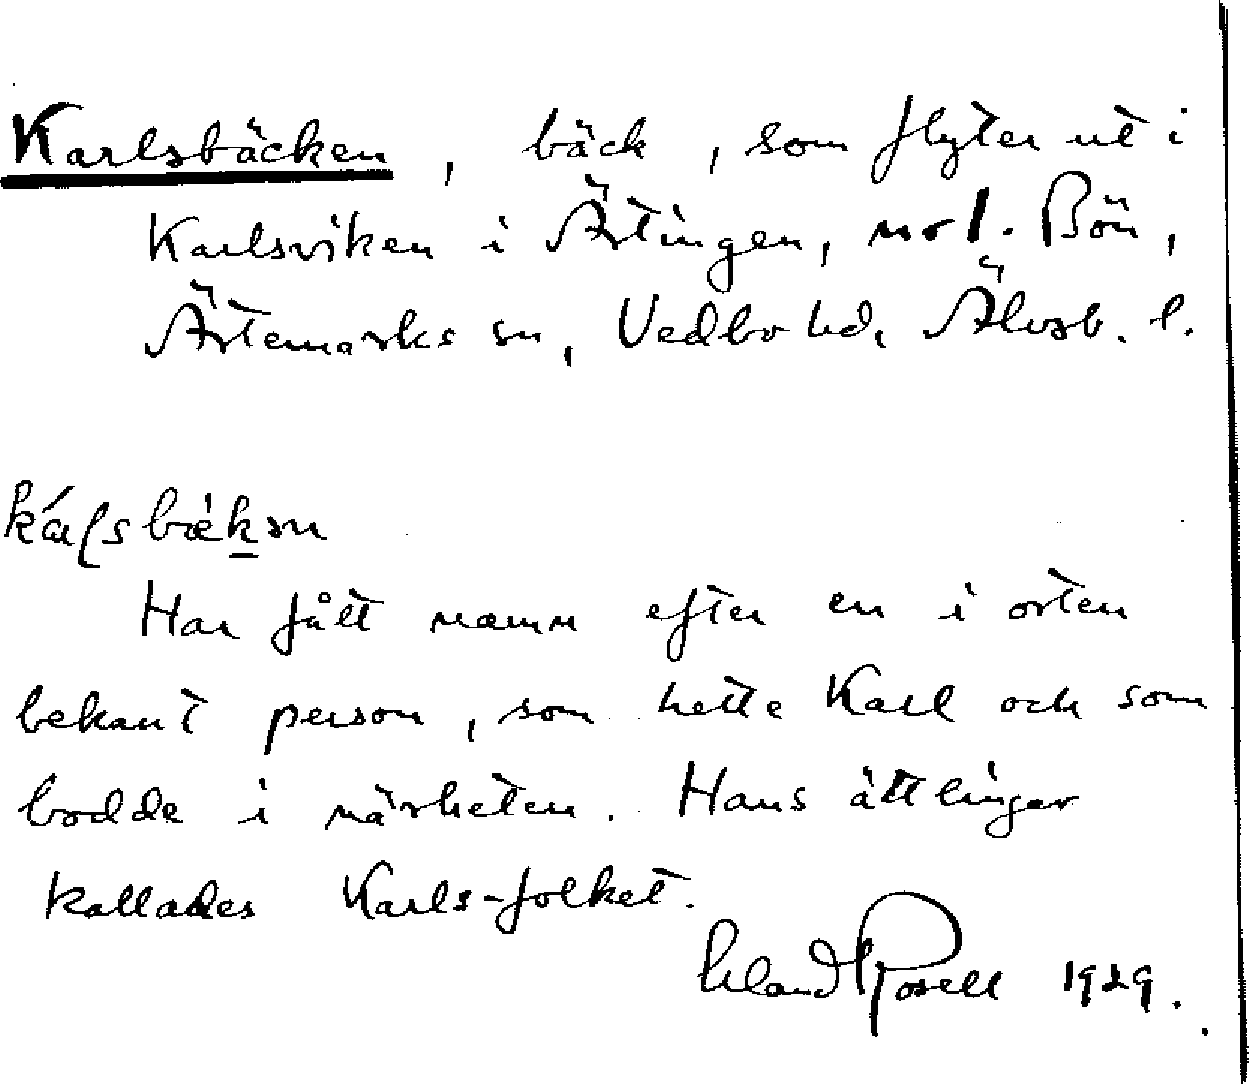 Karlsbäcken, bäck, som flyter ut i
Karlsviken i Ärtingen, nr 1. Bön,
Ärtemarks sn, Vedbo hd, Älvsb. l.
Har fått namn efter en i orten
bekant person, som hette Karl och som
bodde i närheten. Hans ättlingar
kallades Karls-folket.
Erland Rosell 1929.